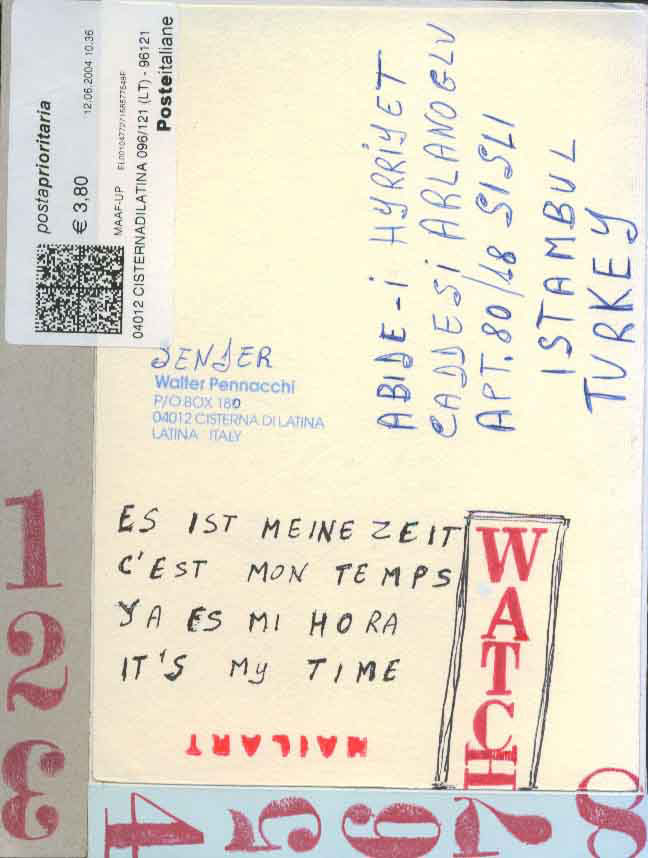 postaprioritaria
12.06.2004 10.36
€ 3,80
MAAF-UP
04012 CISTERNADILATINA 096/121 (LT) - 96121
Posteitaliane
ABIDE-İ HYRRİYET
CADDESİ ARLANOGLU
APT.80/18 SISLI
ISTAMBUL
TURKEY
SENDER
Walter Pennacchi
P/O BOX 180
04012 CISTERNA DI LATINA
LATINA ITALY
ES IST MEINE ZEIT
C'EST MON TEMPS
YA ES MI HORA
IT'S My TIME
WATCH
MAILART
1
2
3
4
5
6
7
8